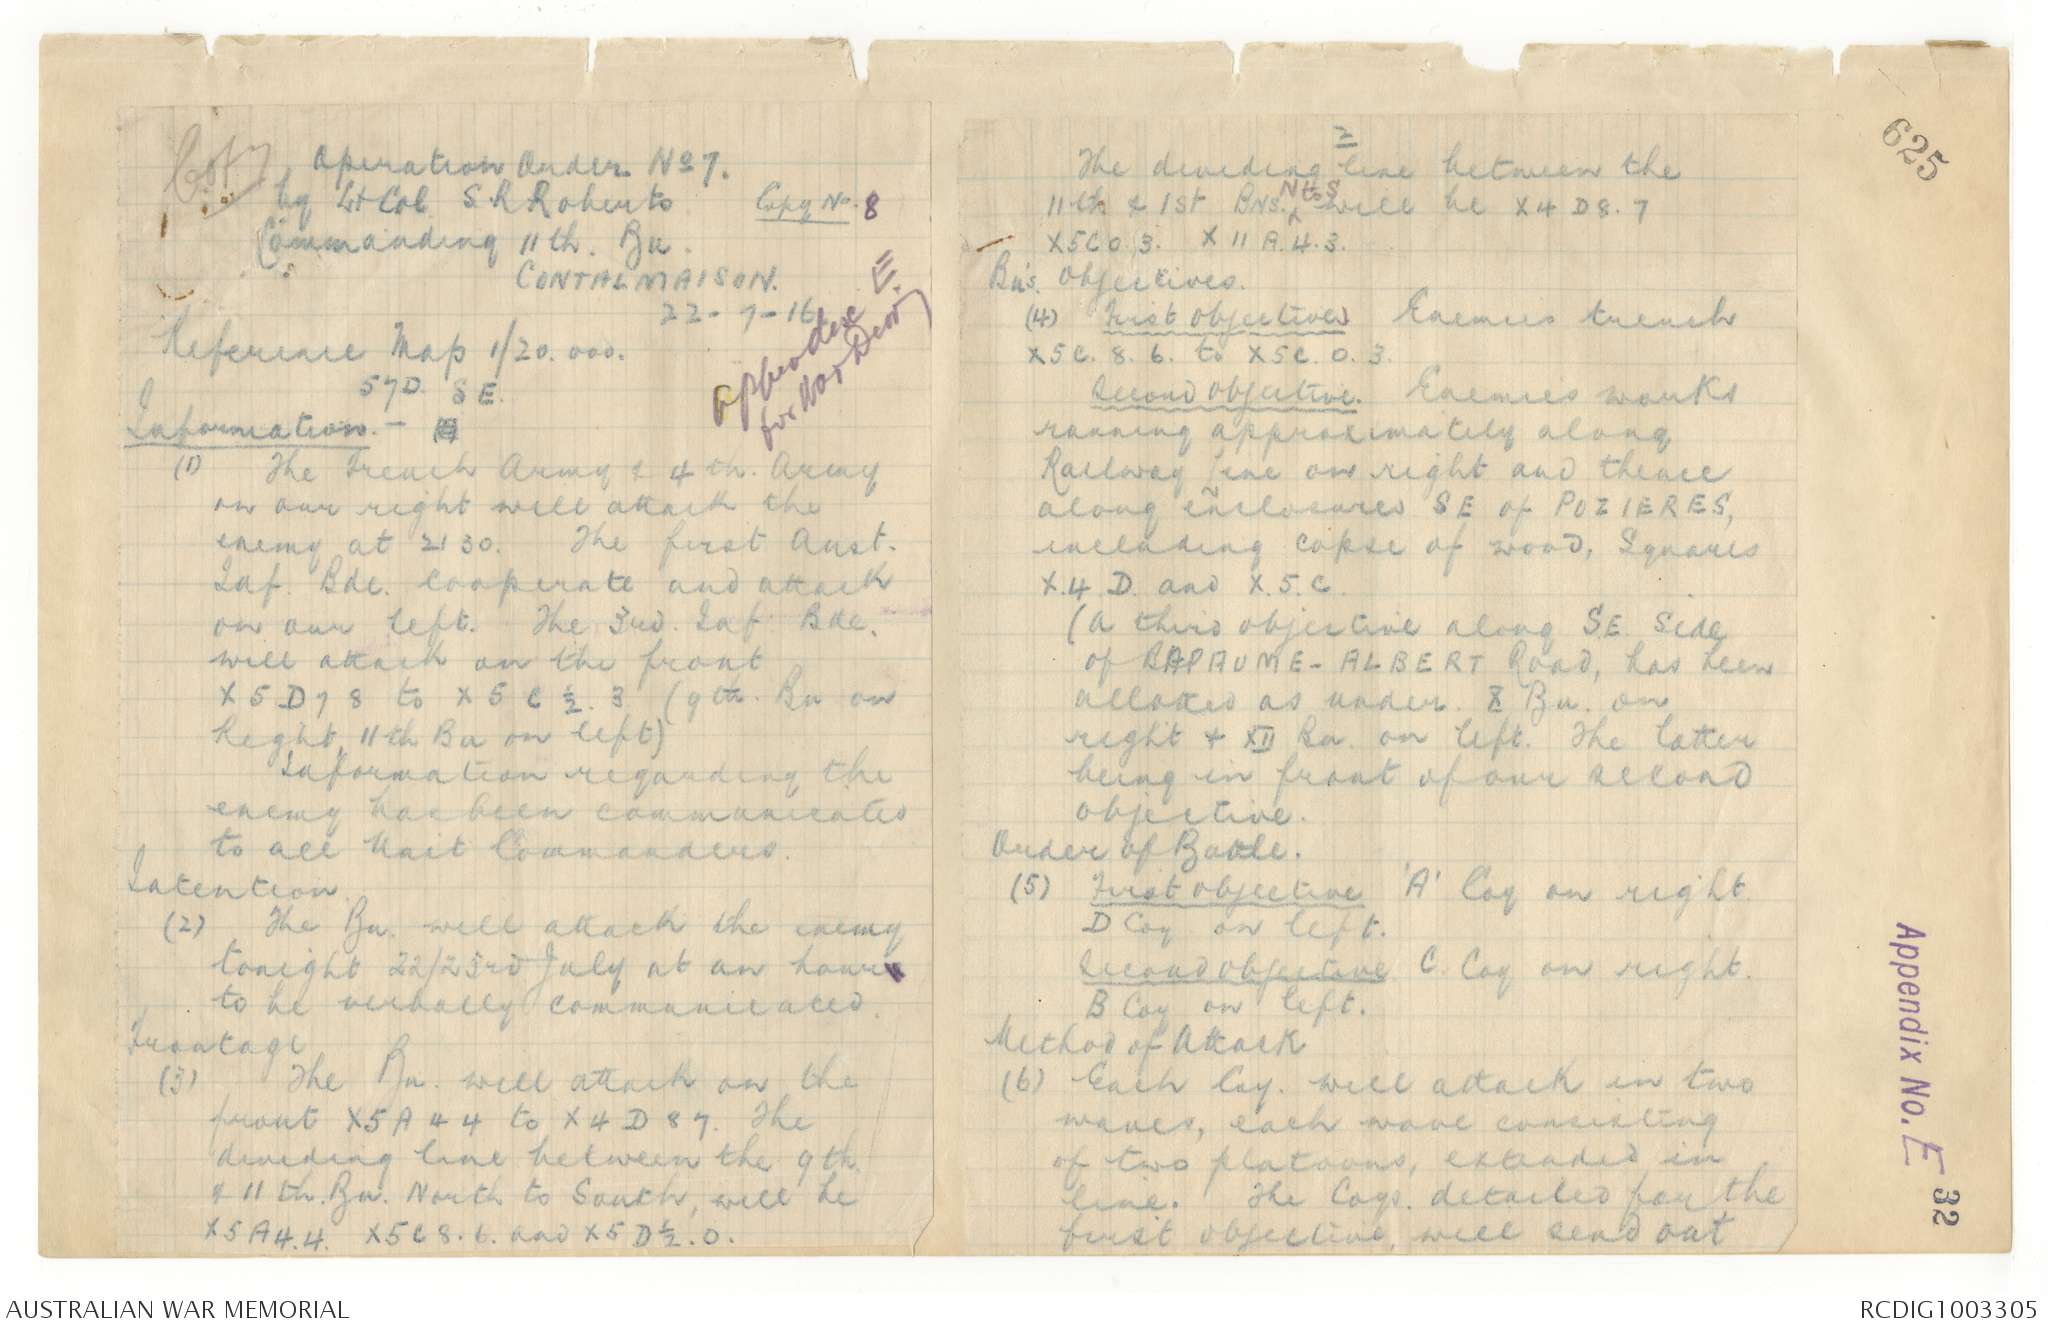 Copy
Operation Order No 7.
by Lt Col S R Roberts Copy No. 8
Commanding 11th. Bn.
CONTALMAISON.
22-7-16
Appendix E.
for War Diary
Reference Map 1/20.000.
57D. SE.
Information. -
(1) The French Army & 4th. Army
on our right will attack the
enemy at 2130. The first Aust.
Inf. Bde. cooperate and attack
on our left. The 3rd. Inf. Bde.
will attack on the front
X5D78 to X5C½.3 (9th. Bn on
Right, 11th Bn on left)
Information regarding the
enemy has been communicated
to all Unit Commanders.
Intention.
(2) The Bn. will attack the enemy
tonight 22/23rd July at an hour
to be verbally communicated.
Frontage
(3) The Bn. will attack on the
front X5A44 to X4D87. The
dividing line between the 9th.
& 11th. Bn. North to South, will be
X5A4.4. X5C8.6. and X5D½.0.
2
The dividing line between the
11th & 1st Bns. N to S will be X4D8.7
X5C0.3. X11A.4.3.
Bn's. Objectives.
(4) First objective Enemies trench
X5C.8.6. to X5C.0.3.
Second objective. Enemies works
running approximately along
Railway line on right and thence
along enclosures SE of POZIERES,
including copse of wood, Squares
X.4.D. and X.5.C.
(A third objective along SE. side
of BAPAUME-ALBERT Road, has been
allotted as under. X Bn. on
right & XII Bn. on left. The latter
being in front of our second
objective.
Order of Battle.
(5) First objective 'A' Coy on right
D Coy on left.
Second objective C. Coy on right.
B Coy on left.
Method of Attack
(6) Each Coy. will attack in two
waves, each wave consisting
of two platoons, extended in
line. The Coys. detailed for the
first objective, will send out
625
Appendix No. E
32
AUSTRALIAN WAR MEMORIAL
RCDIG1003305